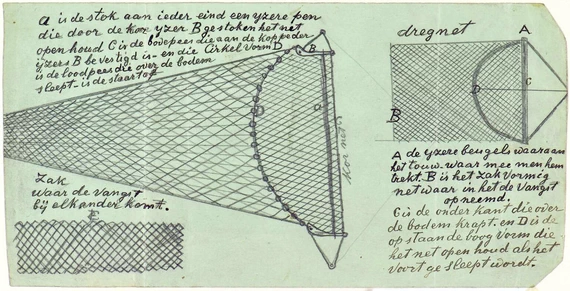 A is de stok aan ieder eind een yzere pen
die door de kore yzer B gestoken het net
open houd C is de bovepees die aan de koppe der
ijzers B bevestigd is - en die Cirkel vorm D
is de loodpees die over de bodem
sleept - is de staart of
B
A
D
kor net
Zak
waar de vangst
bij elkander komt.
E
dregnet
A
B
D
C
A de yzere beugels waaraan
het touw. waar mee men hem
trekt. B is het Zak vormig
net waar in het de vangst
opneemd.
C is de onder kant die over
de bodem krapt. en D is de
op staande boog vorm die
het net open houd als het
voort gesleept wordt.